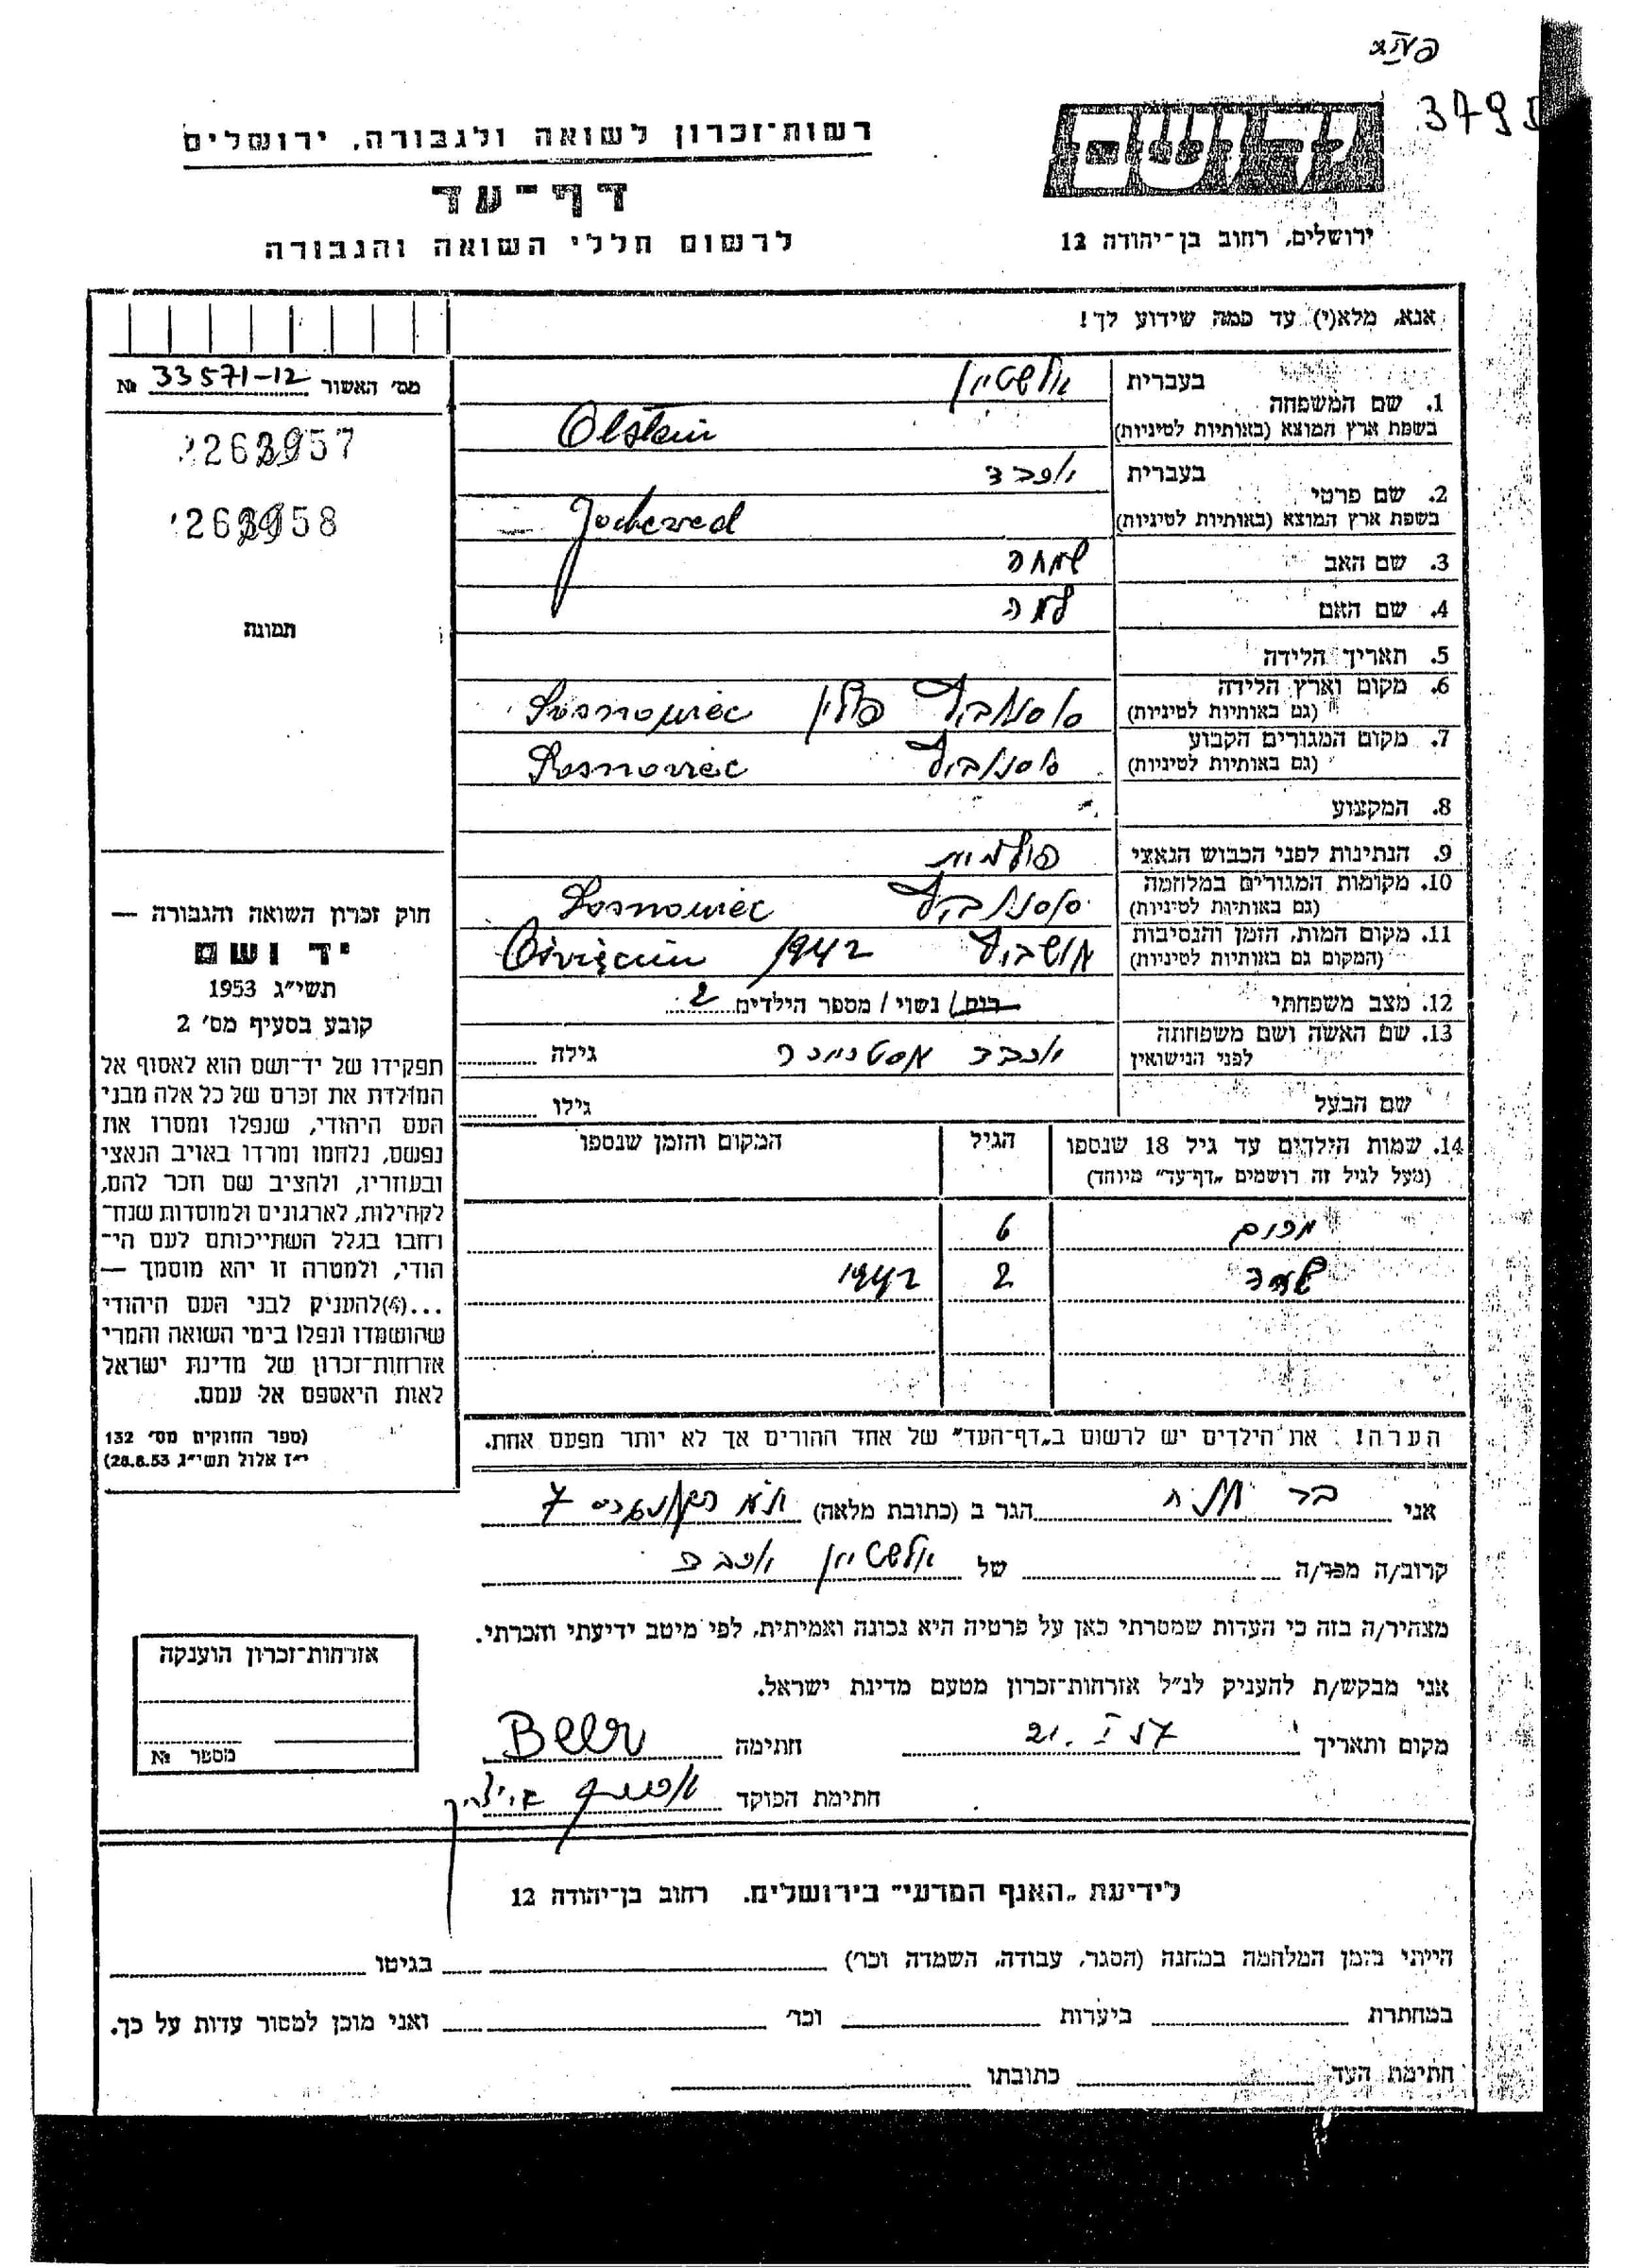 3795
רשות־זכרון לשואה ולגבורה, ירושלים
יד ושם
דף־עד
לרשום חללי השואה והגבורה
ירושלים, רחוב בן־יהודה 12
אנא, מלא(י) עד כמה שידוע לך!
מס׳ האשור 33571-12 №
263957
263958
תמונה
1. שם המשפחה
בעברית אלשטיין
בשפת ארץ המוצא (באותיות לטיניות) Olstein
2. שם פרטי
בעברית יוכבד
בשפת ארץ המוצא (באותיות לטיניות) Jochewed
3. שם האב שמחה
4. שם האם
5. תאריך הלידה
6. מקום וארץ הלידה סוסנוביץ פולין Sosnowiec
(גם באותיות לטיניות)
7. מקום המגורים הקבוע סוסנוביץ Sosnowiec
(גם באותיות לטיניות)
8. המקצוע
9. הנתינות לפני הכבוש הנאצי פולנית
10. מקומות המגורים במלחמה סוסנוביץ Sosnowiec
(גם באותיות לטיניות)
11. מקום המות, הזמן והנסיבות אושביץ 1942 Oświęcim
(המקום גם באותיות לטיניות)
12. מצב משפחתי רווק / נשוי / מספר הילדים 2
13. שם האשה ושם משפחתה יוכבד גילה
לפני הנישואין
שם הבעל גילו
14. שמות הילדים עד גיל 18 שנספו הגיל המקום והזמן שנספו
(מעל לגיל זה רושמים „דף־עד״ מיוחד)
6
2 1942
הערה! את הילדים יש לרשום ב„דף־העד״ של אחד ההורים אך לא יותר מפעם אחת.
חוק זכרון השואה והגבורה —
יד ושם
תשי״ג 1953
קובע בסעיף מס׳ 2
תפקידו של יד־ושם הוא לאסוף אל
המולדת את זכרם של כל אלה מבני
העם היהודי, שנפלו ומסרו את
נפשם, נלחמו ומרדו באויב הנאצי
ובעוזריו, ולהציב שם וזכר להם,
לקהילות, לארגונים ולמוסדות שנח־
רחבו בגלל השתייכותם לעם הי־
הודי, ולמטרה זו יהא מוסמך —
...(4)להעניק לבני העם היהודי
שהושמדו ונפלו בימי השואה והמרי
אזרחות־זכרון של מדינת ישראל
לאות היאספם אל עמם.
(ספר החוקים מס׳ 132
י״ז אלול תשי״ג 28.8.53)
אני בר הגר ב (כתובת מלאה) ת״א 7
קרוב/ה מכר/ה של אלשטיין יוכבד
מצהיר/ה בזה כי העדות שמסרתי כאן על פרטיה היא נכונה ואמיתית, לפי מיטב ידיעתי והכרתי.
אני מבקש/ת להעניק לנ״ל אזרחות־זכרון מטעם מדינת ישראל.
מקום ותאריך 21. I 57 חתימה Beer
חתימת הפוקד
אזרחות־זכרון הוענקה
מספר №
לידיעת „האגף המדעי״ בירושלים. רחוב בן־יהודה 12
הייתי בזמן המלחמה במחנה (הסגר, עבודה, השמדה וכו׳) בגיטו
במחתרת ביערות וכו׳ ואני מוכן למסור עדות על כך.
חתימת העד כתובתו